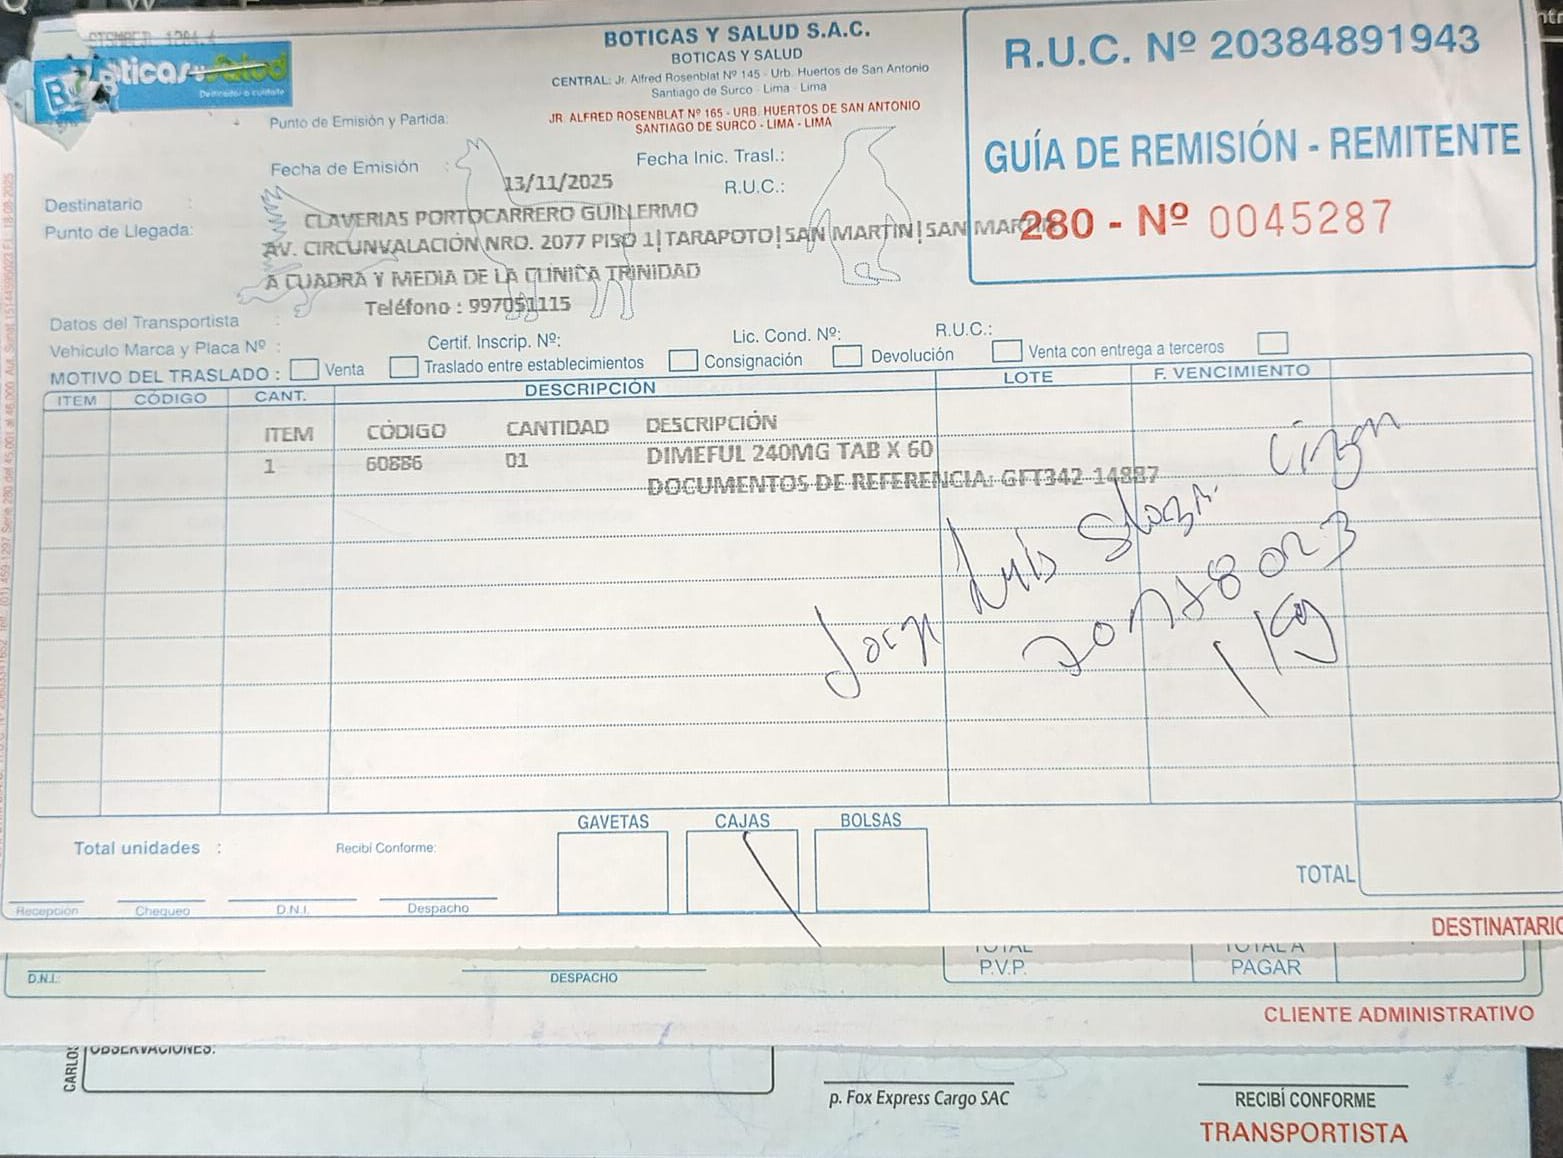 Boticas y Salud
Dedicados a cuidarte
BOTICAS Y SALUD S.A.C.
BOTICAS Y SALUD
CENTRAL: Jr. Alfred Rosenblat Nº 145 - Urb. Huertos de San Antonio
Santiago de Surco - Lima - Lima
Punto de Emisión y Partida:
JR. ALFRED ROSENBLAT Nº 165 - URB. HUERTOS DE SAN ANTONIO
SANTIAGO DE SURCO - LIMA - LIMA
R.U.C. Nº 20384891943
GUÍA DE REMISIÓN - REMITENTE
280 - Nº 0045287
Fecha de Emisión : 13/11/2025
Fecha Inic. Trasl.:
R.U.C.:
Destinatario : CLAVERIAS PORTOCARRERO GUILLERMO
Punto de Llegada: AV. CIRCUNVALACIÓN NRO. 2077 PISO 1|TARAPOTO|SAN MARTIN|SAN MARTIN
A CUADRA Y MEDIA DE LA CLINICA TRINIDAD
Teléfono : 997051115
Datos del Transportista :
Vehiculo Marca y Placa Nº : Certif. Inscrip. Nº: Lic. Cond. Nº: R.U.C.:
MOTIVO DEL TRASLADO : Venta Traslado entre establecimientos Consignación Devolución Venta con entrega a terceros
ITEM CÓDIGO CANT. DESCRIPCIÓN LOTE F. VENCIMIENTO
ITEM CÓDIGO CANTIDAD DESCRIPCIÓN
1 60886 01 DIMEFUL 240MG TAB X 60
DOCUMENTOS DE REFERENCIA: GFT342-14887
Jorge Luis
1 Kg
GAVETAS CAJAS BOLSAS
Total unidades : Recibí Conforme:
TOTAL
Recepción Chequeo D.N.I. Despacho
DESTINATARIO
D.N.I.: DESPACHO
TOTAL P.V.P.
TOTAL A PAGAR
CLIENTE ADMINISTRATIVO
CARLOS
OBSERVACIONES:
p. Fox Express Cargo SAC
RECIBÍ CONFORME
TRANSPORTISTA